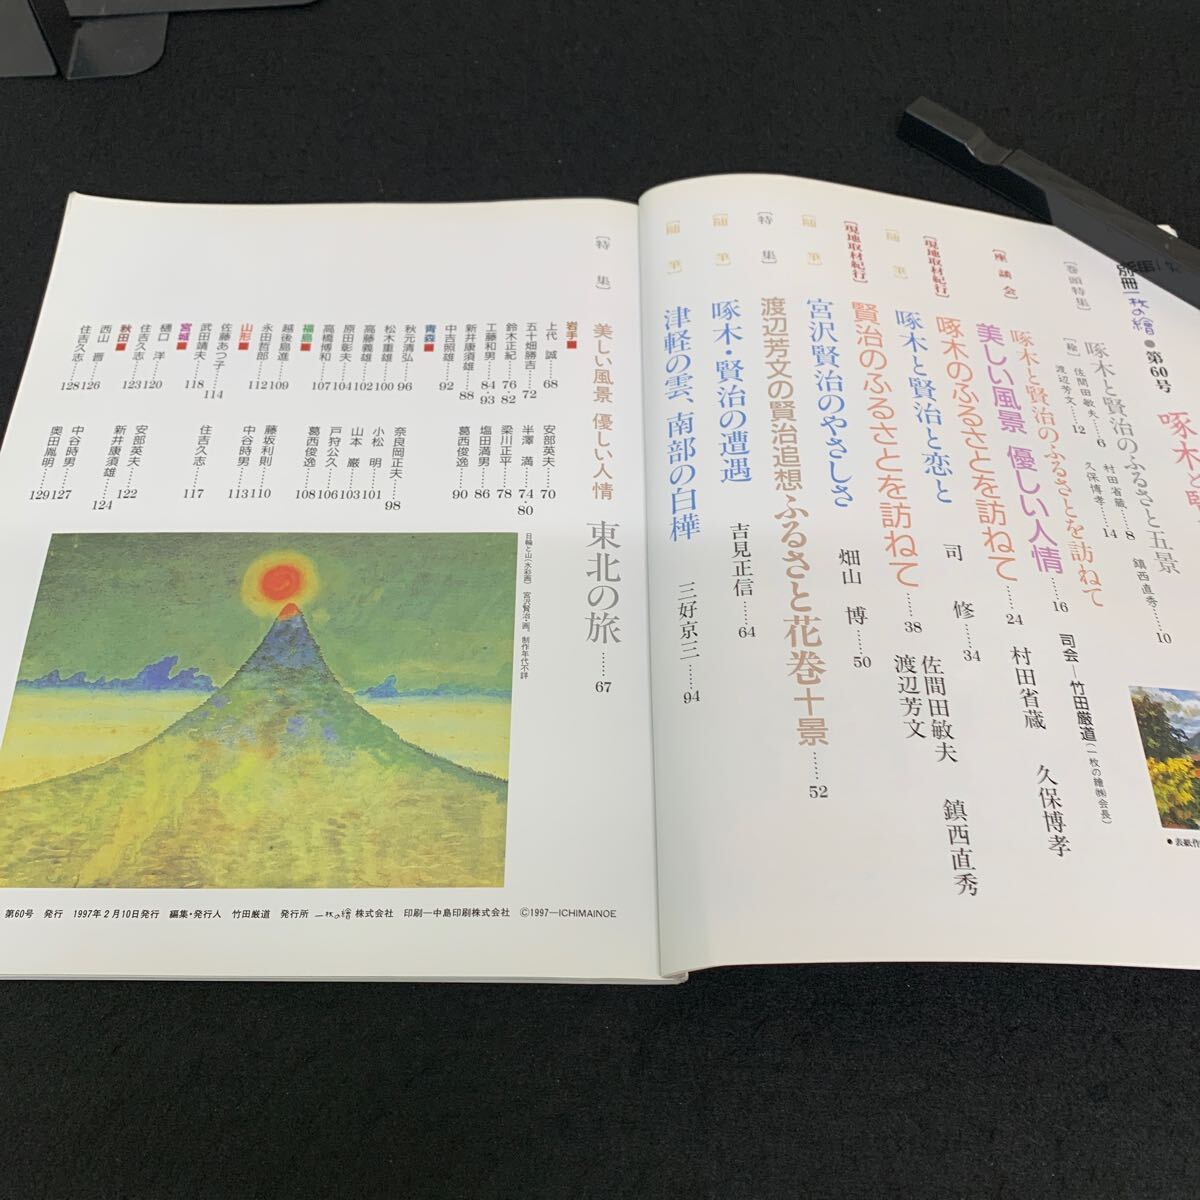 別冊一枚の繪●第60号
啄木と
[巻頭特集]
啄木と賢治のふるさと五景
[絵]
佐間田敏夫……6
村田省蔵……8
鎮西直秀……10
渡辺芳文……12
久保博孝……14
啄木と賢治のふるさとを訪ねて
[座談会]
美しい風景 優しい人情……16
司会―竹田厳道(一枚の繪㈱会長)
[現地取材紀行]
啄木のふるさとを訪ねて……24
村田省蔵
久保博孝
[随筆]
啄木と賢治と恋と
司 修……34
[現地取材紀行]
賢治のふるさとを訪ねて……38
佐間田敏夫
鎮西直秀
渡辺芳文
[随筆]
宮沢賢治のやさしさ
畑山 博……50
[特集]
渡辺芳文の賢治追想ふるさと花巻十景……52
[随筆]
啄木・賢治の遭遇
吉見正信……64
[随筆]
津軽の雲、南部の白樺
三好京三……94
[特集]
美しい風景 優しい人情 東北の旅……67
岩手■
上代 誠……68
安部英夫……70
五十畑勝吉……72
半澤 満……74・80
鈴木正紀……76 82
梁川正平……78
工藤和男……84 93
塩田満男……86
新井康須雄……88
葛西俊逸……90
中吉照雄……92
青森■
秋元清弘……96
奈良岡正夫……98
松木重雄……100
小松 明……101
高藤義雄……102
山本 巖……103
原田彰夫……104
戸狩公久……106
高橋博和……107
葛西俊逸……108
福島■
越後島進……109
藤坂利則……110
永田哲郎……112
中谷時男……113
山形■
佐藤あつ子……114
住吉久志……117
武田靖夫……118
宮城■
樋口 洋……120
安部英夫……122
住吉久志……123
新井康須雄……124
秋田■
西山 晋……126
中谷時男……127
住吉久志……128
奥田胤明……129
日輪と山(水彩画) 宮沢賢治・画、制作年代不詳
第60号 発行 1997年2月10日発行 編集・発行人 竹田厳道 発行所 一枚の繪 株式会社 印刷―中島印刷株式会社 ©1997―ICHIMAINOE
●表紙作